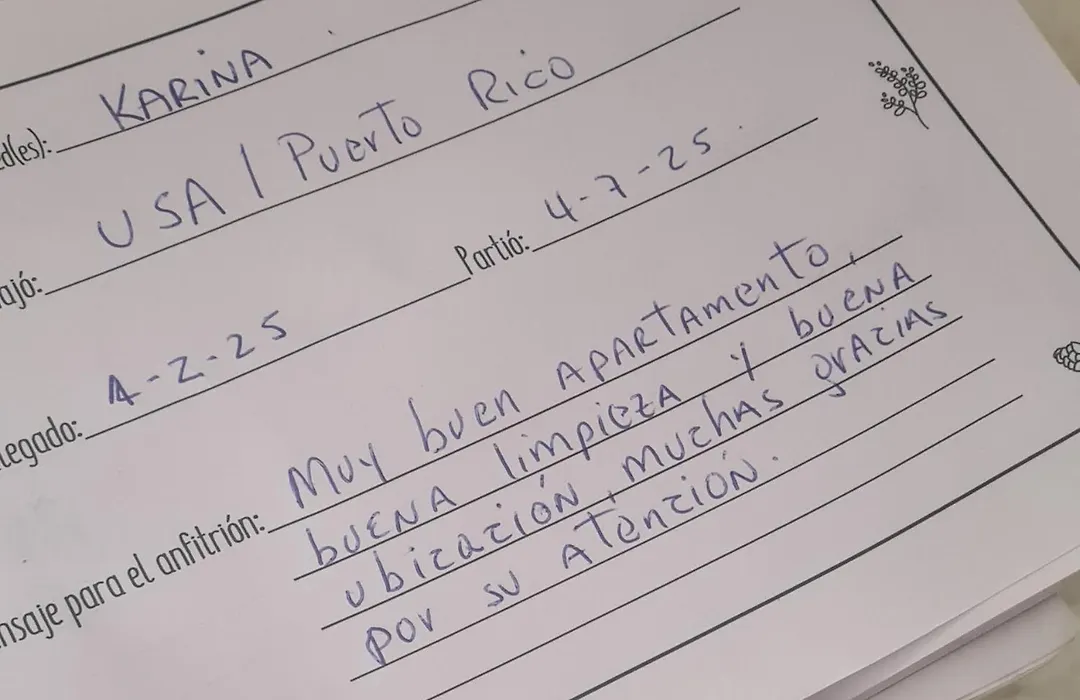 ed(es): KARINA
ajó: USA / Puerto Rico
legado: 4-2-25 Partió: 4-7-25.
nsaje para el anfitrión: Muy buen apartamento,
buena limpieza y buena
ubicación, muchas gracias
por su atención.